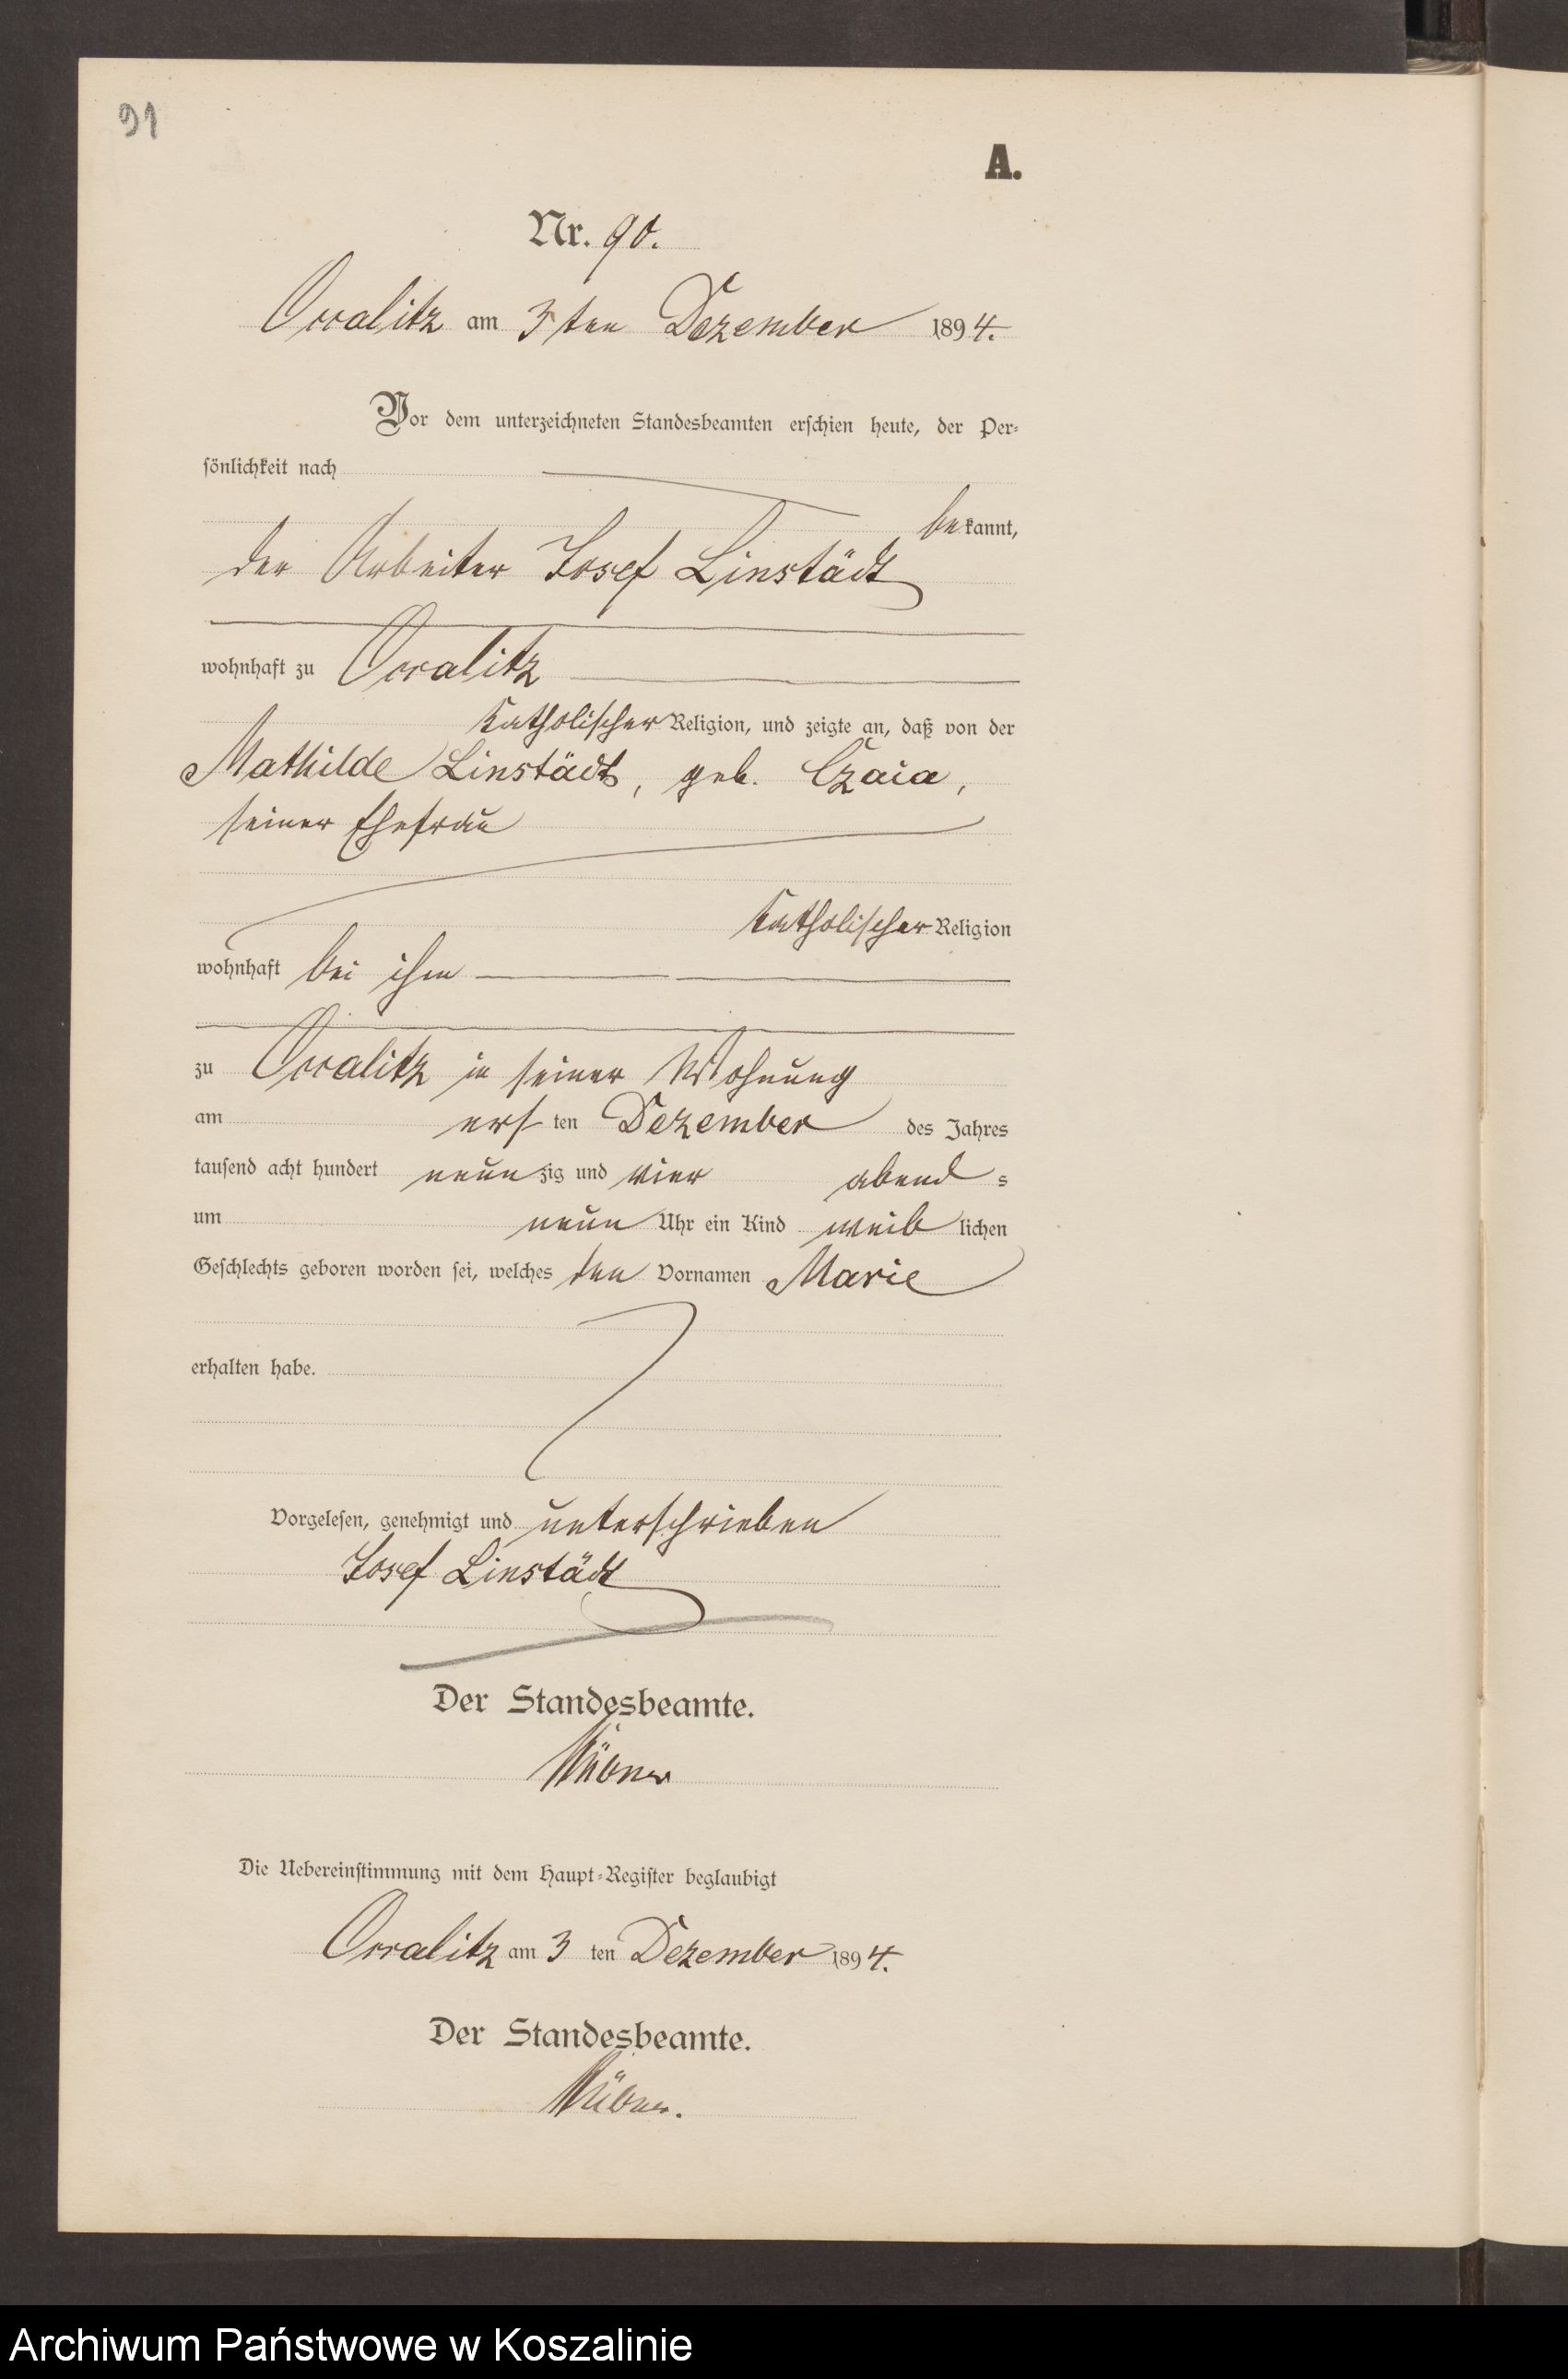 91
A.
Nr. 90.
Osralitz am 3ten Dezember 1894.
Vor dem unterzeichneten Standesbeamten erschien heute, der Per-
sönlichkeit nach
bekannt,
der Arbeiter Josef Linstädt
wohnhaft zu
katholischer Religion, und zeigte an, daß von der
Mathilde Linstädt, geb. Czaia,
seiner Ehefrau
katholischer Religion
wohnhaft bei ihm
zu in seiner Wohnung
am ersten Dezember des Jahres
tausend acht hundert neunzig und vier abends
um neun Uhr ein Kind weiblichen
Geschlechts geboren worden sei, welches den Vornamen Marie
erhalten habe.
Vorgelesen, genehmigt und unterschrieben
Josef Linstädt
Der Standesbeamte.
Die Uebereinstimmung mit dem Haupt-Register beglaubigt
am 3 ten Dezember 1894.
Der Standesbeamte.
Archiwum Państwowe w Koszalinie